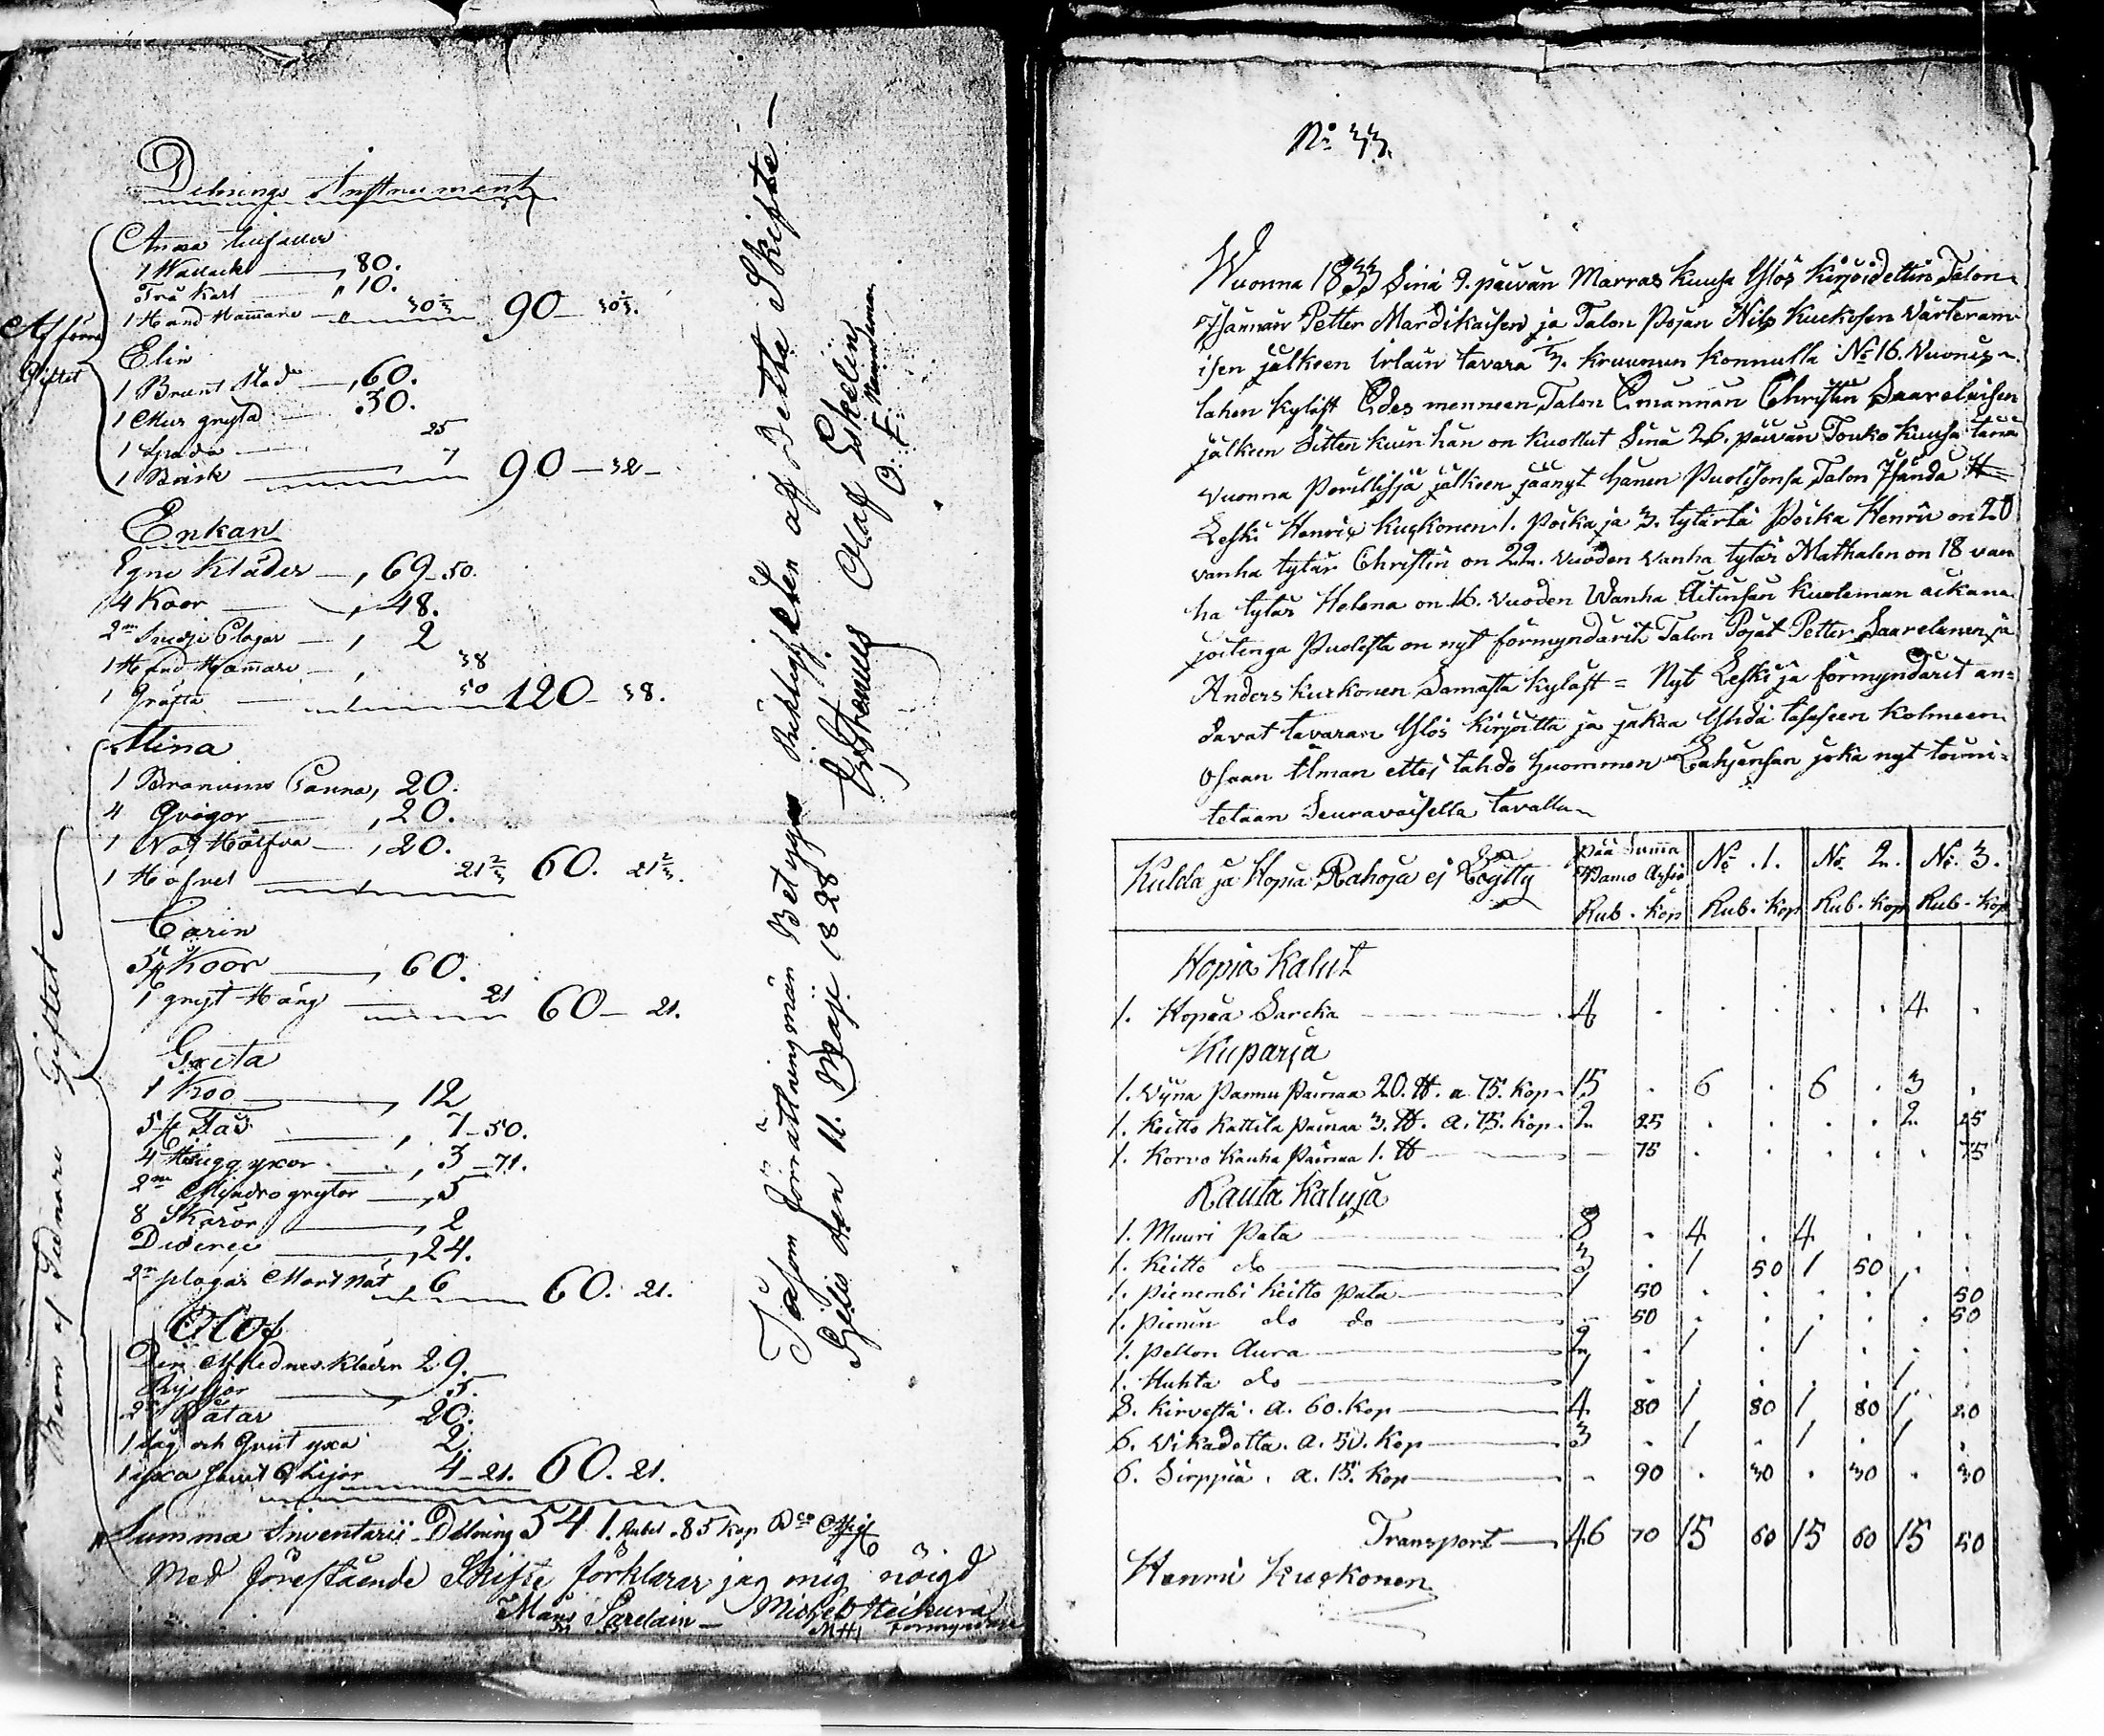 Delnings Instrument
Anna
1 Wallack — , 80.
Trä Karl — " 10.
1 Hand Hamare — 30⅔ 90 — 30⅔.
Af förra
Giftet
Elin
1 Brunt Stod — , 60.
1 Mur gryta — 30.
1 Spada — 25
1 — 7 90 — 32 —
Enkan
Egne Kläder — , 69 - 50.
4 Koor — , 48.
2ne Plagar — , 2
1 Hand Hamare — , 38
1 Gräfta — 50 120 - 38.
Stina
1 Branvins Panna, 20.
4 Qvigor — , 20.
1 Not Hälfva — , 20.
1 Hofvel — 21⅔ 60. 21⅔.
Carin
5 Koor — , 60.
1 gryt Häng — 21 60 — 21.
Greta
1 Koo — , 12
5 st Får — , 7 - 50.
4 Hugg yxor — , 3 - 71.
2ne Mindre grytor — , 5
8 Skäror — , 2
Diverse — , 24.
2ne plagar Mort Nät , 6 60. 21.
Olof
Den Aflednes Kläder 29.
— 5.
2ne Båtar — 20.
1 såg och Qvist yxa 2.
1 yxa samt 4 — 21. 60. 21.
Barn af sednare Giftet
Summa Inventarii Delning 541. Rubel. 85 Kop Bco Assig
Med förestående Skifte förklarar jag mig nöigd
Måns Sarelain — Michel Heikura
MHI förmyndare
Såsom förrättningsmän Betyga Riktigheten af Detta Skifte —
den 11. Maji 1828 Olof Eskelin
O. E. Nämndeman
No 33.
Wuonna 1833 Sinä 9. päivän Marras Kuusa Ylös Kirjoidettin Talon
Isännän Petter Mardikaisen ja Talon Pojan Nils Kuckosen Värteram
isen jälkeen Irtain tavara ⅓. Kruunun Konnulla No 16. Vuonis
lahen Kyläst Edes menneen Talon Emännän Christin Saarelaisen
jälkeen Sitten kuin hän on Kuollut Sinä 26. päivän Touko Kuusa tänä
vuonna Perillisjä jälkeen jäänyt hänen Puolisonsa Talon Isändä
Leski Henric Kuckonen 1. Poika ja 3. tytärtä Poika Henric on 20
vanha tytär Christin on 22. vuoden vanha tytär Mathalen on 18 van
ha tytär Helena on 16. vuoden Wanha Äitinsän Kuoleman aikana
joitenga Puolesta on nyt förmyndärit Talon Pojat Petter Saarelainen ja
Anders Kuckonen Samasta Kyläst = Nyt Leski ja förmyndärit an=
davat tavaran Ylös Kirjoitta ja jakaa Yhdä tasaseen Kolmeen
Osaan Ilman ettej tahdo huommen Lahjansan joka nyt toimi=
tetaan Seuravaisella tavalla
Kulda ja Hopia Rahoja ej Löytty Pää Summa No. 1. No. 2. No. 3.
Rub. Kop Rub. Kop Rub. Kop Rub. Kop
Hopia Kalut
1. Hopia Sarcka — 4 . . . . . 4 .
Kuparja
1. Vijna Pannu Painaa 20. ℔. a 75. Kop — 15 . 6 . 6 . 3 .
1. Keitto Kattila Painaa 3. ℔. a. 75. Kop. 2 25 . . . . 2 25
1. Korvo Kauha Painaa 1. ℔ — 75 . . . . . 75
Rauta Kaluja
1. Muuri Pata — 8 . 4 . 4 . . .
1. Keitto do — 3 . 1 50 1 50 . .
1. Pienembi Keitto Pata — 1 50 . . . . 1 50
1. Pienin do do — 50 . . . . . 50
1. Pellon Aura — 2 . 1 . 1 . . .
1. Huhta do — 1 . . . . . 1 .
8. Kirvestä. a. 60. Kop — 4 80 1 80 1 80 1 20
6. Vikadetta. a. 50. Kop — 3 . 1 . 1 . 1 .
6. Sirppiä. a. 15. Kop — - 90 . 30 . 30 . 30
Transport — 46 70 15 60 15 60 15 50
Henric Kuckonen